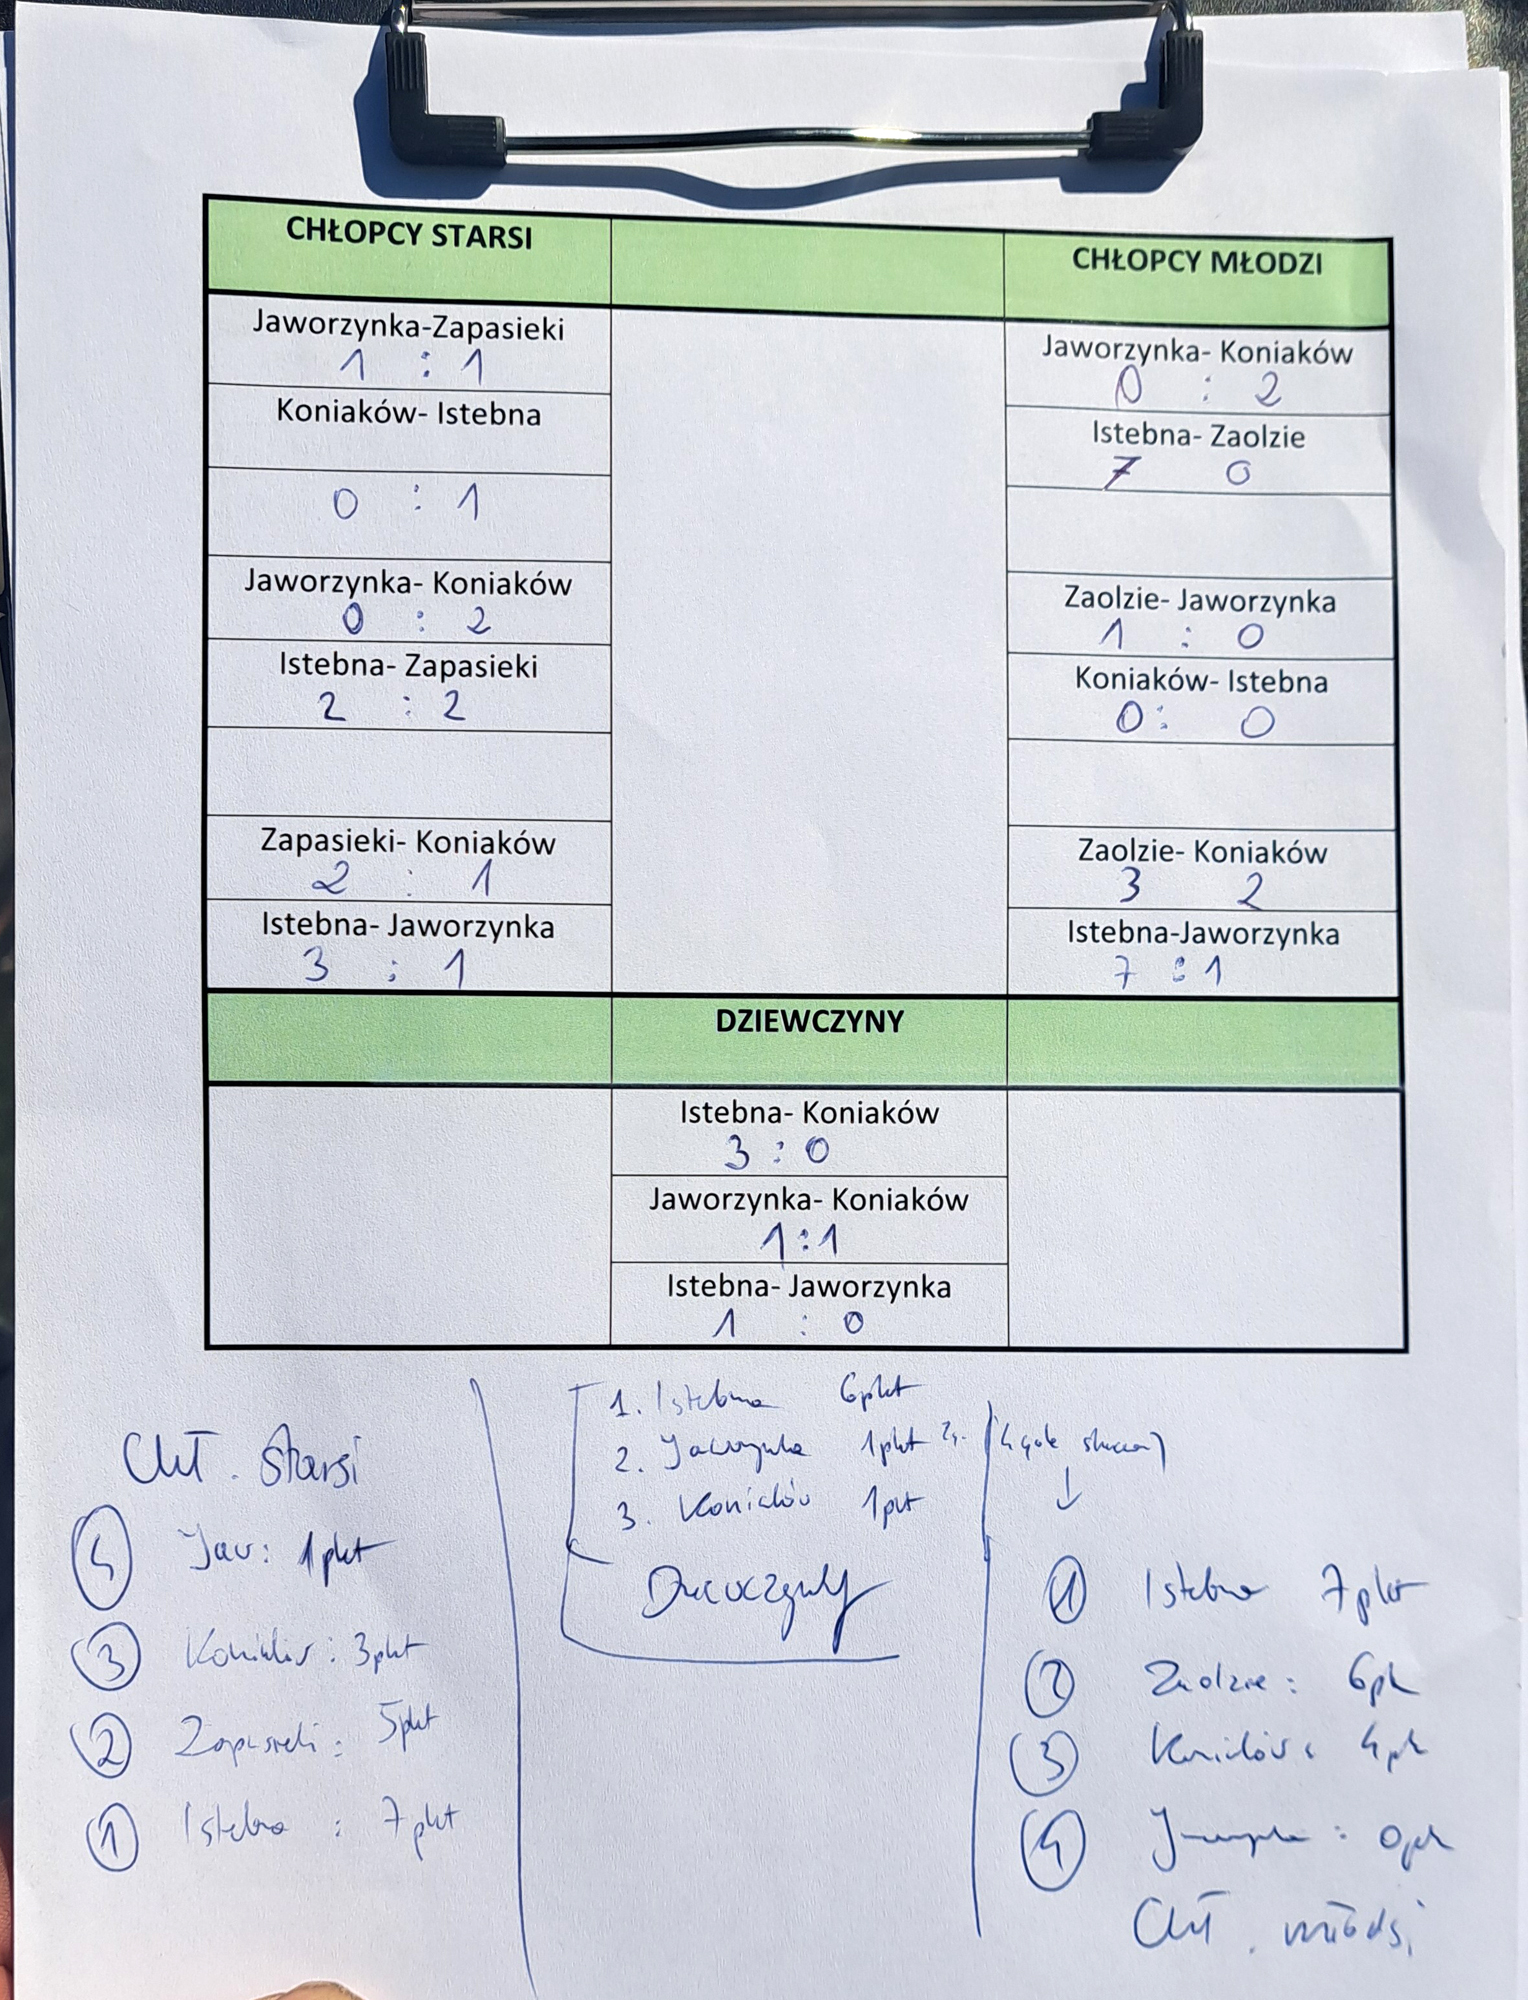 CHŁOPCY STARSI
Jaworzynka-Zapasieki
1 : 1
Koniaków- Istebna
0 : 1
Jaworzynka- Koniaków
0 : 2
Istebna- Zapasieki
2 : 2
Zapasieki- Koniaków
2 : 1
Istebna- Jaworzynka
3 : 1
CHŁOPCY MŁODZI
Jaworzynka- Koniaków
0 : 2
Istebna- Zaolzie
7 0
Zaolzie- Jaworzynka
1 : 0
Koniaków- Istebna
0 : 0
Zaolzie- Koniaków
3 2
Istebna-Jaworzynka
7 : 1
DZIEWCZYNY
Istebna- Koniaków
3 : 0
Jaworzynka- Koniaków
1 : 1
Istebna- Jaworzynka
1 : 0
Chł. starsi
4 Jaw: 1pkt
3 Koniaków: 3pkt
2 Zapasieki: 5pkt
1 Istebna : 7pkt
1. Istebna 6pkt
2. Jaworzynka 1pkt
3. Koniaków 1pkt
Dziewczyny
1 Istebna 7pkt
2 Zaolzie: 6pk
3 Koniaków: 4pk
4 Jaworzynka: 0pk
Chł. młodsi